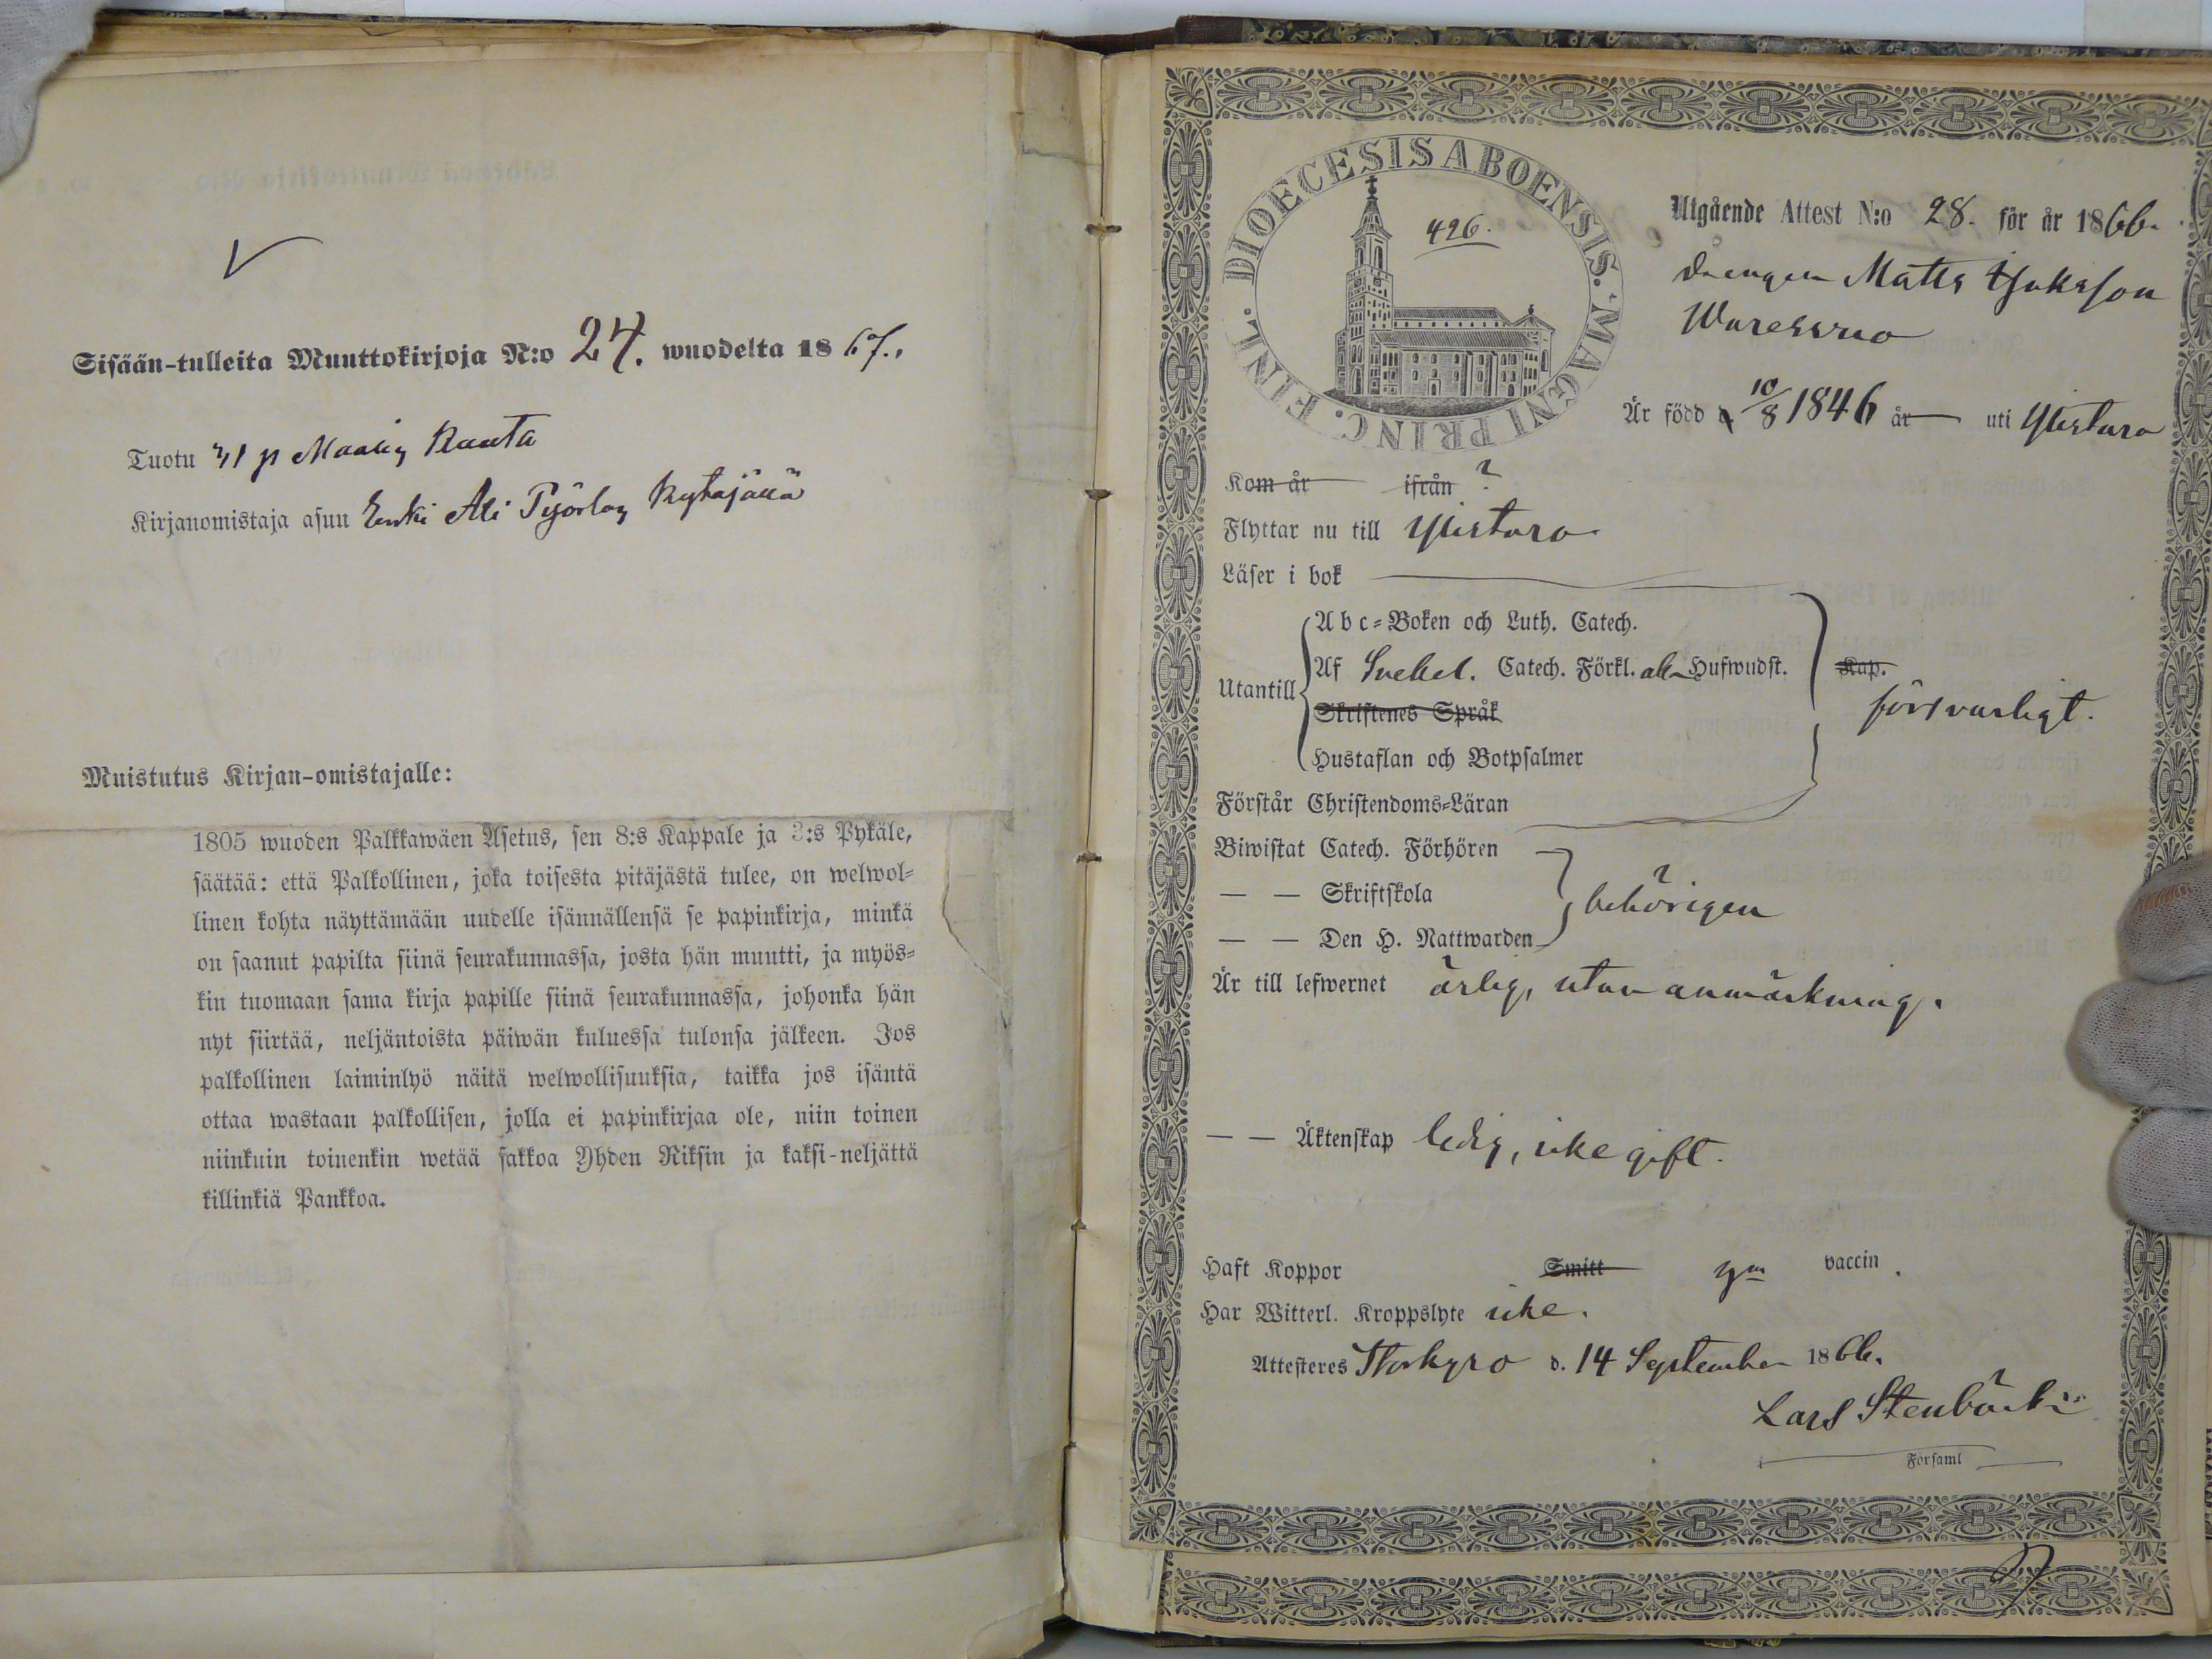 Sisään-tulleita Muuttokirjoja N:o 24. wuodelta 1867.,
Tuotu p Maalis Kuuta
Kirjanomistaja asuu Ali Kytäjällä
Muistutus Kirjan-omistajalle:
1805 wuoden Palkkawäen Asetus, sen 8:s Kappale ja 3:s Pykäle,
säätää: että Palkollinen, joka toisesta pitäjästä tulee, on welwol-
linen kohta näyttämään uudelle isännällensä se papinkirja, minkä
on saanut papilta siinä seurakunnassa, josta hän muutti, ja myös-
kin tuomaan sama kirja papille siinä seurakunnassa, johonka hän
nyt siirtää, neljäntoista päiwän kuluessa tulonsa jälkeen. Jos
palkollinen laiminlyö näitä welwollisuuksia, taikka jos isäntä
ottaa wastaan palkollisen, jolla ei papinkirjaa ole, niin toinen
niinkuin toinenkin wetää sakkoa Yhden Riksin ja kaksi-neljättä
killinkiä Pankkoa.
DIOECESIS ABOENSIS. MAGNI PRINC. FINL.
426.
Utgående Attest N:o 28. för år 1866.
Drengen Matts
Är född d 10/8 1846 år uti Ylistaro
Kom år ifrån
Flyttar nu till Ylistaro
Läser i bok
Utantill
A b c-Boken och Luth. Catech.
Af Svebel. Catech. Förkl. Hufwudst.
Skriftenes Språk
Hustaflan och Botpsalmer
Kap.
försvarligt.
Förstår Christendoms-Läran
Biwistat Catech. Förhören
— — Skriftskola
— — Den H. Nattwarden
behörigen
Är till lefwernet ärlig, utan anmärkning.
— — Äktenskap ledig, icke gift.
Haft Koppor Smitt gm vaccin.
Har Witterl. Kroppslyte icke.
Attesteres Storkyro d. 14 September 1866.
Lars Stenbäck
Församl